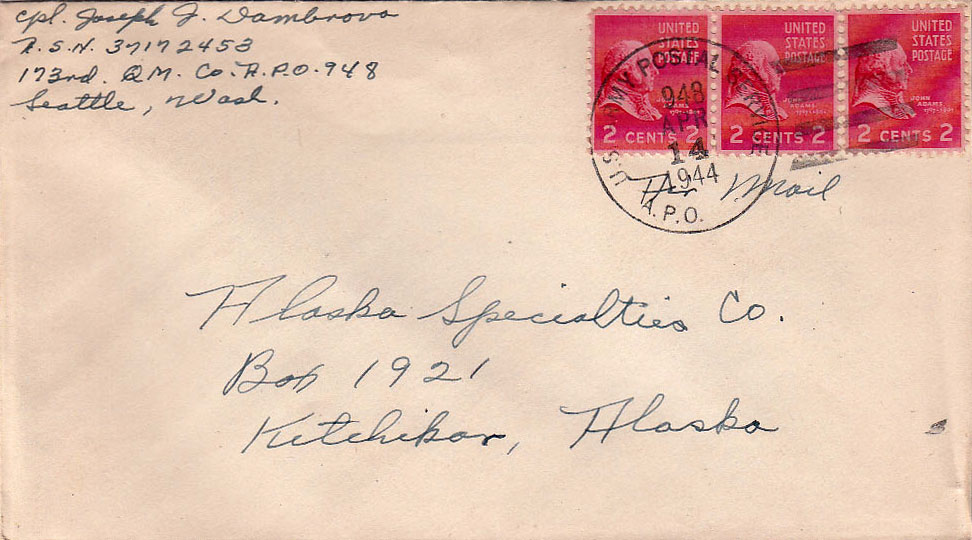 Cpl. Joseph J. Dambrova
A.S.N. 37172453
173rd. QM. Co. A.P.O. 948
Seattle, Wash.
UNITED STATES POSTAGE
JOHN ADAMS
2 CENTS 2
UNITED STATES POSTAGE
JOHN ADAMS
2 CENTS 2
UNITED STATES POSTAGE
JOHN ADAMS
2 CENTS 2
U.S. ARMY POSTAL SERVICE
948
APR
14
1944
A.P.O.
Air Mail
Alaska Specialties Co.
Box 1921
Ketchikan, Alaska